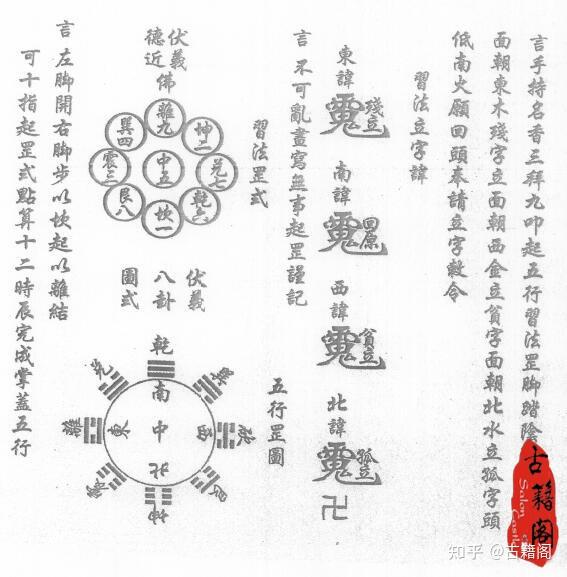 言手持名香三拜九叩起五行習法罡脚踏陰
面朝東木殘字立面朝西金立貧字面朝北水立孤字頭
低南火願回頭奉請立字敕令
習法立字諱
東諱
殘立
南諱
回原
西諱
貧立
北諱
孤立
卍
言不可亂畫寫無事起罡謹記
習法罡式
五行罡圖
伏義
德近佛
離九
坤二
巽四
兌七
中五
震三
乾六
艮八
坎一
伏義
八卦
圖式
乾
兌
巽
南
離
東
中
西
坎
北
震
艮
坤
言左脚開右脚步以坎起以離結
可十指起罡式點算十二時辰完成掌蓋五行
古籍閣
知乎 @古籍阁